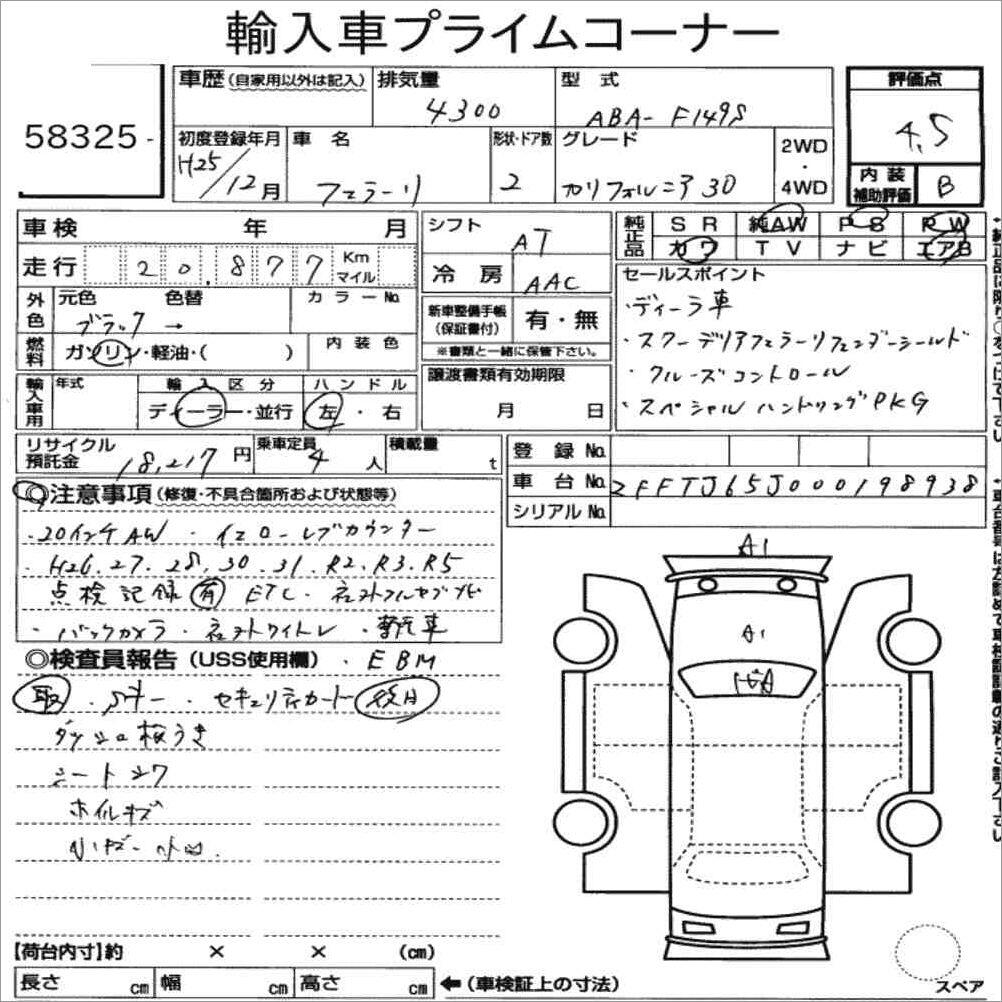 輸入車プライムコーナー
58325-
車歴(自家用以外は記入)
排気量 4300
型式 ABA-F149S
評価点 4.5
初度登録年月 H25/12月
車名 フェラーリ
形状・ドア数 2
グレード カリフォルニア30
2WD・4WD
内装補助評価 B
車検 年 月
走行 20,877 Km マイル
シフト AT
冷房 AAC
純正品 SR 純AW PS PW
カワ TV ナビ エアB
外色 元色 ブラック → 色替 カラーNo.
燃料 ガソリン・軽油・( ) 内装色
新車整備手帳(保証書付) 有・無
※書類と一緒に保管下さい。
セールスポイント
・ディーラ車
・スクーデリアフェラーリフェンダーシールド
・クルーズコントロール
・スペシャルハンドリングPKG
輸入車用 年式 輸入区分 ディーラー・並行 ハンドル 左・右
譲渡書類有効期限 月 日
リサイクル預託金 18,217円
乗車定員 4人
積載量 t
登録No.
車台No. ZFFTJ65J000198938
シリアルNo.
◎注意事項(修復・不具合箇所および状態等)
・20インチAW ・イエローレブカウンター
・H26.27.28.30.31.R2.R3.R5
点検記録有 ETC・社外フルセグナビ
・バックカメラ・社外
◎検査員報告(USS使用欄)・EBM
取・Sキー・セキュリティカード後日
ダッシュ板うき
シートシワ
ホイルキズ
小キズ・小凹
A1
A1
【荷台内寸】約 × × (cm)
長さ cm 幅 cm 高さ cm ←(車検証上の寸法)
スペア